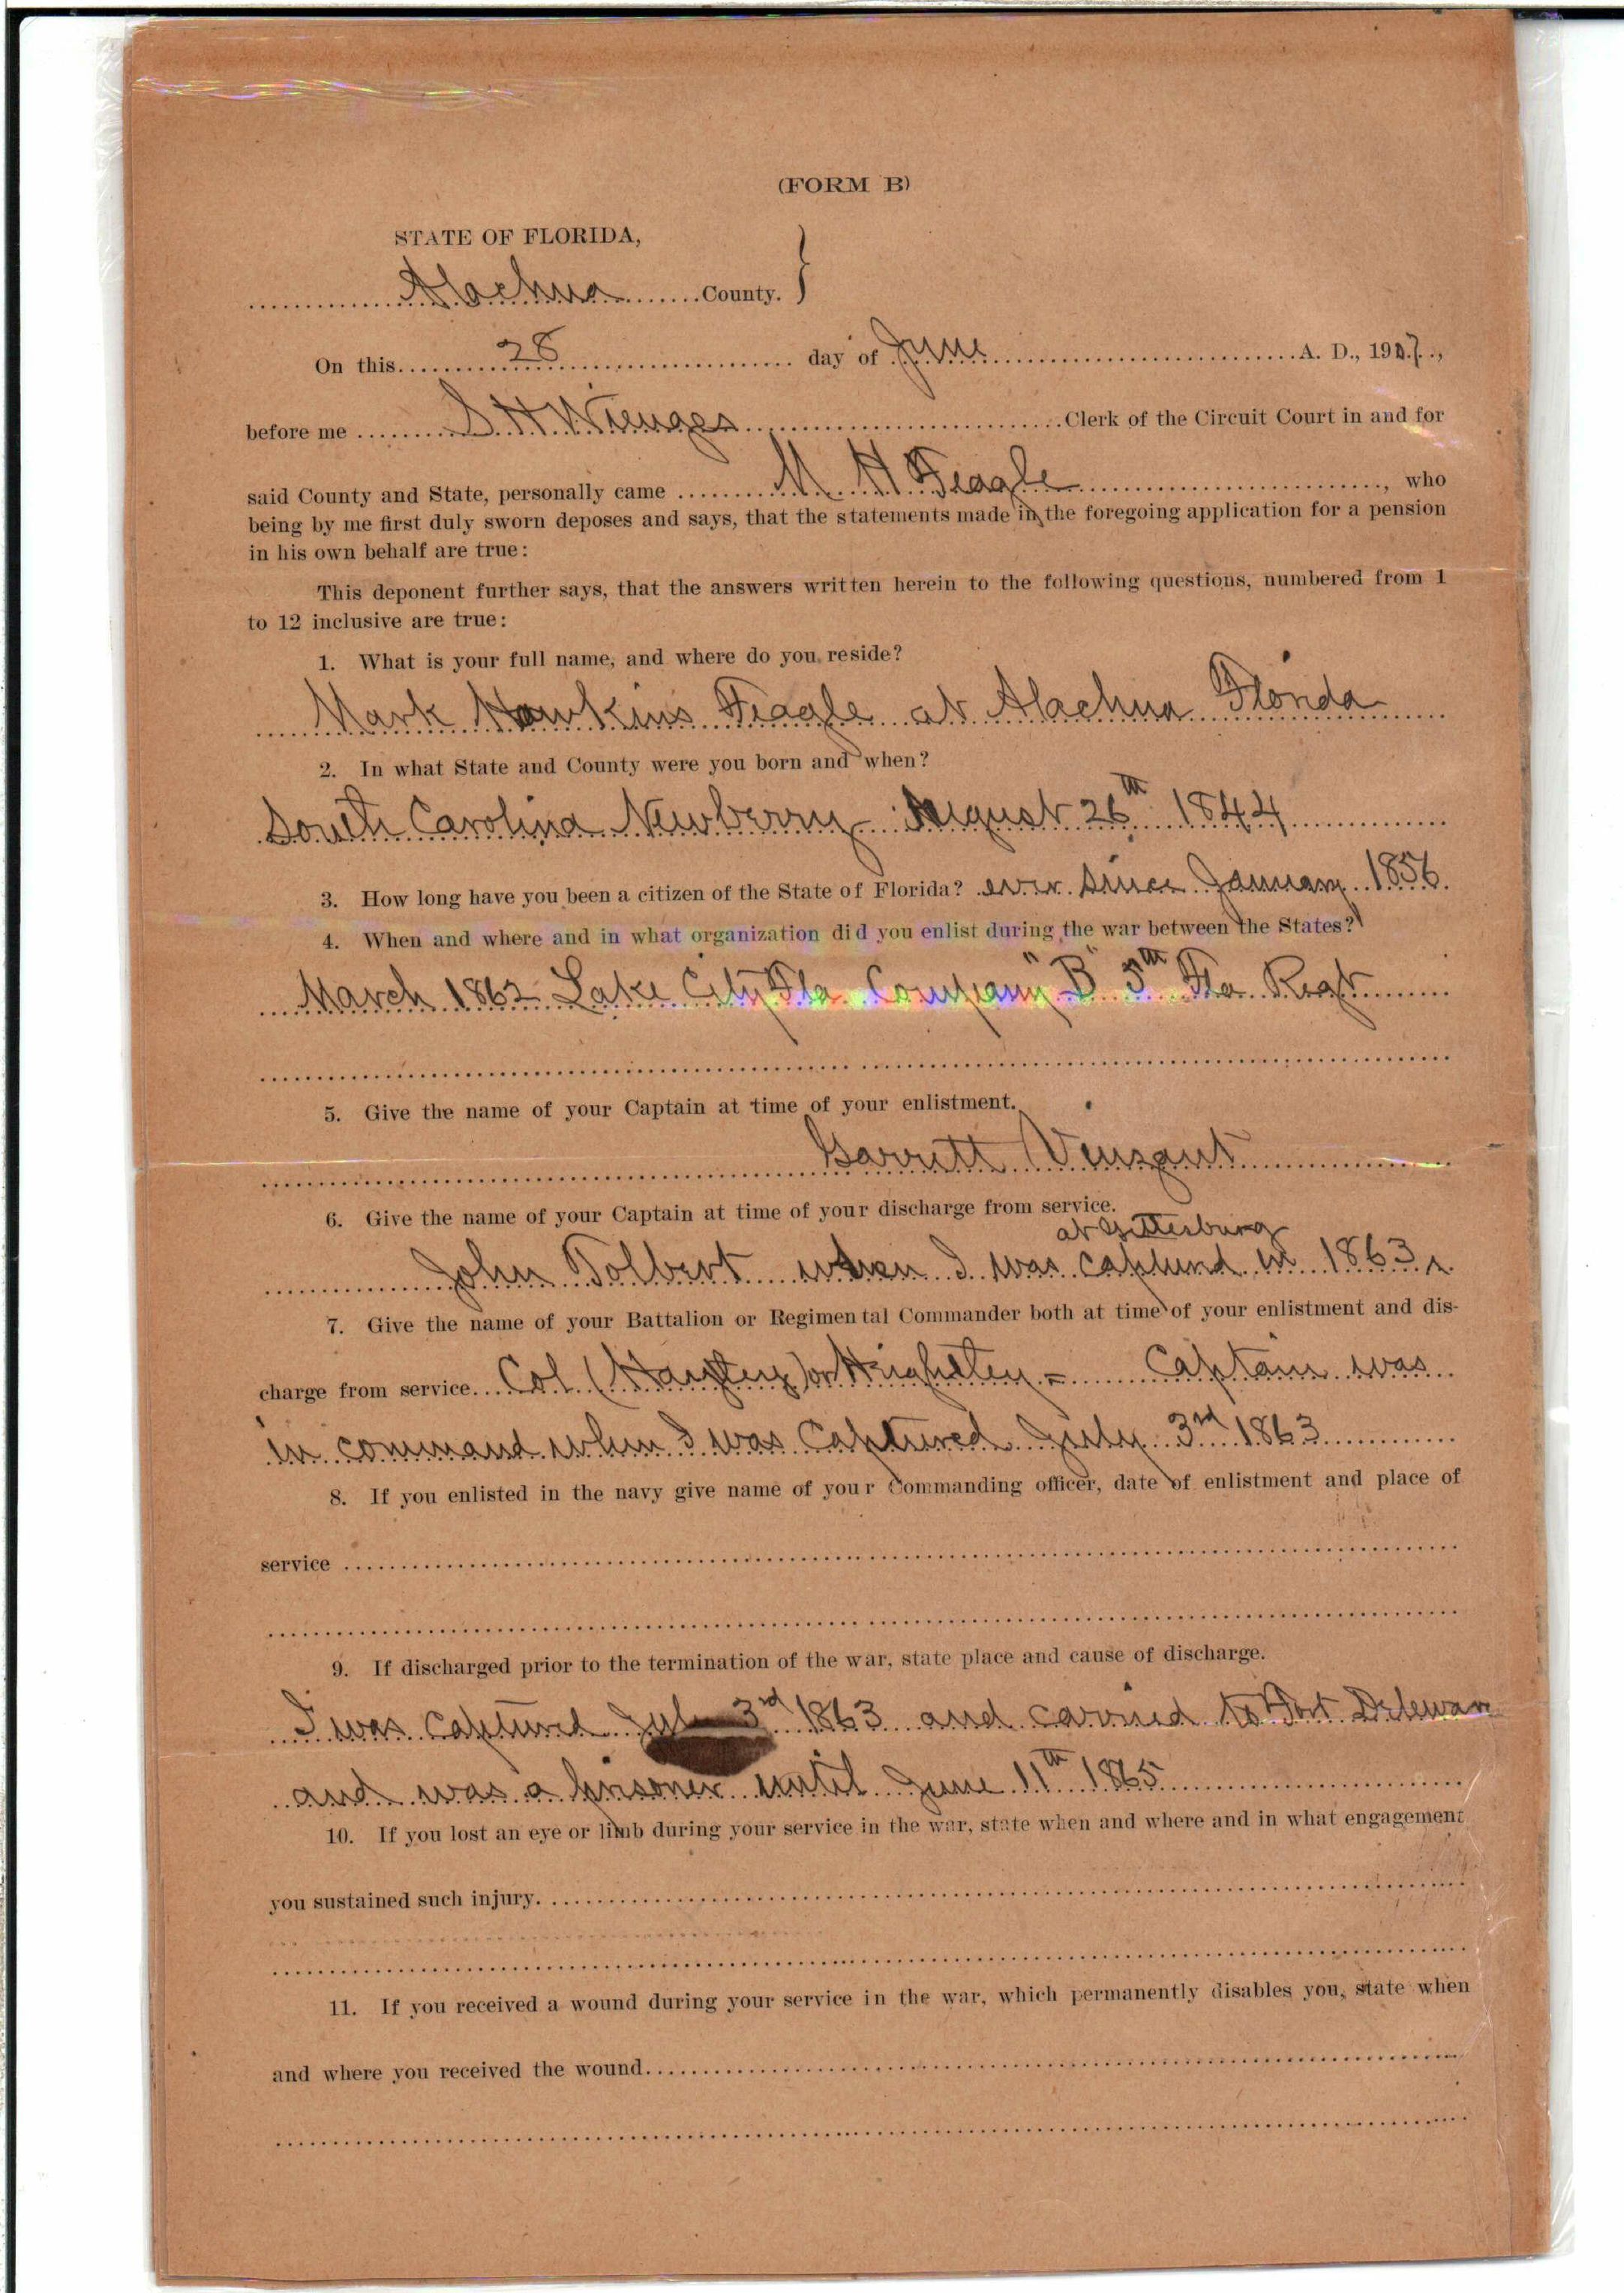 (FORM B)
STATE OF FLORIDA,
Alachua County. }
On this 28 day of June A. D., 1907,
before me S H Wienges Clerk of the Circuit Court in and for
said County and State, personally came M H Feagle, who
being by me first duly sworn deposes and says, that the statements made in the foregoing application for a pension
in his own behalf are true:
This deponent further says, that the answers written herein to the following questions, numbered from 1
to 12 inclusive are true:
1. What is your full name, and where do you reside?
Mark Hawkins Feagle at Alachua Florida
2. In what State and County were you born and when?
South Carolina Newberry August 26th 1844
3. How long have you been a citizen of the State of Florida? ever since January 1856
4. When and where and in what organization did you enlist during the war between the States?
March 1862 Lake City Fla Company "B" 5th Fla Regt
5. Give the name of your Captain at time of your enlistment.
Garrett Vanzant
6. Give the name of your Captain at time of your discharge from service.
at Gettesburg
John Tolbert when I was captured in 1863
7. Give the name of your Battalion or Regimental Commander both at time of your enlistment and dis-
charge from service. Col ( ) or = Captain was
in command when I was Captured July 3rd 1863
8. If you enlisted in the navy give name of your Commanding officer, date of enlistment and place of
service
9. If discharged prior to the termination of the war, state place and cause of discharge.
I was captured July 3rd 1863 and carried to Fort Deleware
and was a prisoner until June 11th 1865
10. If you lost an eye or limb during your service in the war, state when and where and in what engagement
you sustained such injury.
11. If you received a wound during your service in the war, which permanently disables you, state when
and where you received the wound